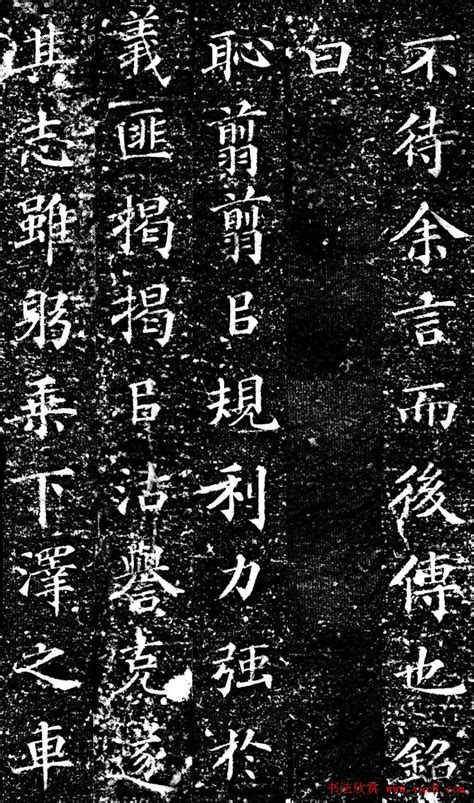 不待余言而後傳也銘
曰
恥翦翦㠯規利力强於
義匪揭揭㠯沽譽克遂
其志雖躬乘下澤之車
书法欣赏